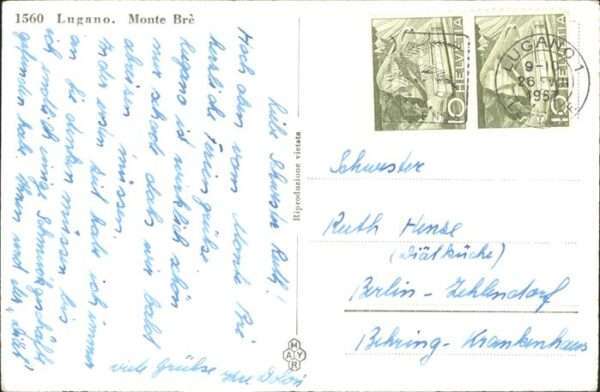 1560 Lugano. Monte Brè
Liebe Schwester Ruth!
Hoch oben vom Monte Brè
herzliche Feriengrüße
Lugano ist wirklich schön
nur schade daß wir bald
abreisen müssen.
In der ersten Zeit habe ich immer
an Sie denken müssen bis
ich endlich einige
gefunden habe. Ihnen und
viele Grüße
Riproduzione vietata
MAYR
HELVETIA
10
HELVETIA
10
LUGANO 1
9-10
26
Schwester
Ruth Hense
(Diätküche)
Berlin-Zehlendorf
Behring-Krankenhaus